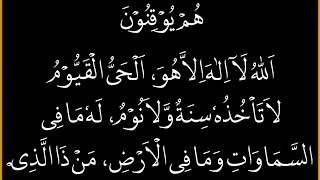 هُمْ يُوْقِنُوْنَ
اَللهُ لَآ اِلٰهَ اِلاَّ هُوَ، اَلْحَىُّ الْقَيُّوْمُ
لاَ تَاْخُذُهٗ سِنَةٌ وَّلاَ نَوْمٌ، لَهٗ مَا فِى
السَّمَاوَاتِ وَمَا فِى الْاَرْضِ، مَنْ ذَا الَّذِىْ